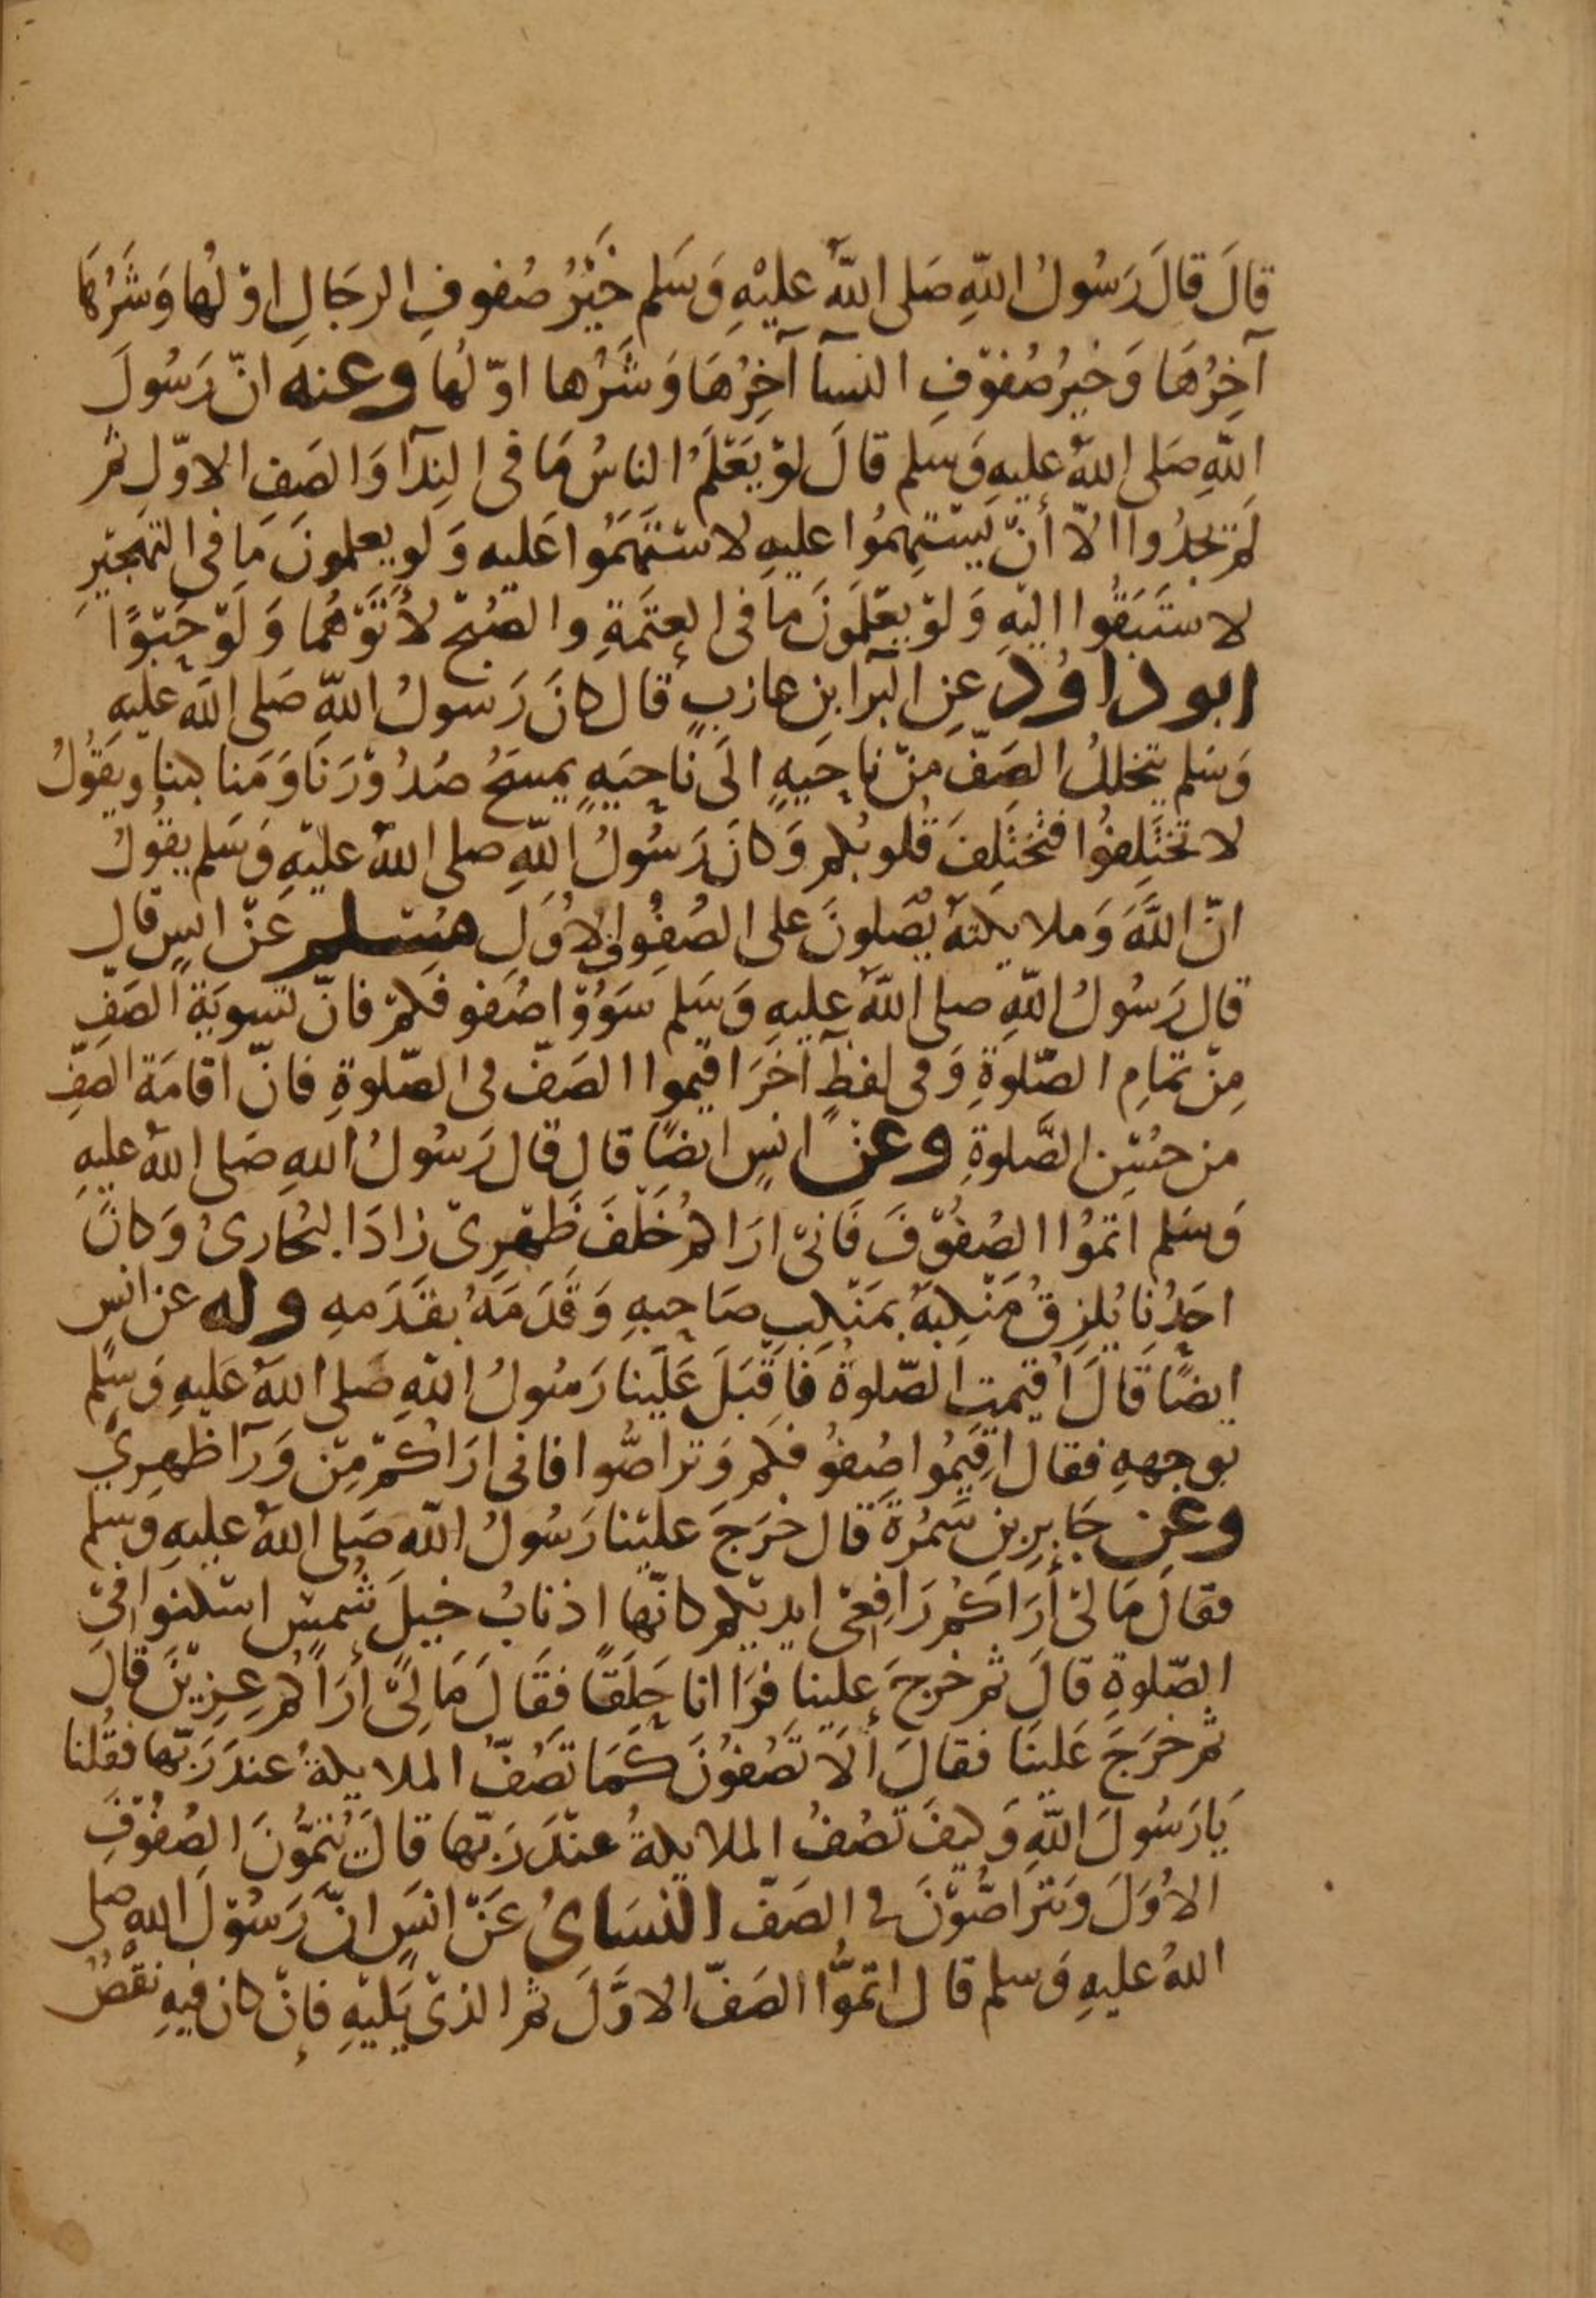 قالَ قالَ رَسُولُ اللّهِ صَلى اللّهُ عليْهِ وَسَلم خَيْرُ صُفوفِ الرجَالِ اوّلُها وَشَرُّهَا
آخِرُهَا وَخيرُ صُفوْفِ النسآ آخِرُهَا وَشَرُّها اوّلُها وعنه انّ رَسُولَ
اللّهِ صَلى اللّهُ عليهِ وَسَلم قالَ لوْ يَعْلَمُ الناسُ مَا فى النِدآ وَالصَفِ الاوّلِ ثم
لَم تجدُوا الّا أنْ يَسْتهِمُوا عليهِ لاسْتَهَمُوا عَليه وَلو يعلمونَ مَا فى التهجيْرِ
لاسْتَبَقُوا اليْهِ وَلوْ يعْلمَونَ ما فى العتَمَةِ والصُبْح لأتوْهُما وَلَوْ حَبْوًا
ابو داوُد عَنِ البَرآ ابنِ عازبٍ قال كانَ رَسولُ اللّهِ صَلى اللّه عليْهِ
وَسَلم يتخللُ الصَفّ مِنْ ناحِيَهٍ الَى ناحِيَهٍ يمسَحُ صُدُوْرَنَا وَمَناكبنا ويَقُولُ
لا تَخْتَلِفُوا فتَختَلِفَ قُلوبُكم وَكانَ رَسُولُ اللّهِ صلى اللّهُ عليْهِ وَسَلم يقُولُ
انّ اللَّهَ وَملايكتهُ يُصَلونَ على الصُفُوفِ الاُوَلِ مُسْلم عَنْ انسٍ قال
قال رَسُولُ اللّهِ صلى اللّهُ عليهِ وَسَلم سَوُوْا صُفوفكمْ فانّ تسوِيَةَ الصَفِ
مِنْ تمَامِ الصّلوةِ وَفى لفظٍ آخَرَ اقيموا الصَفّ فى الصّلوةِ فانّ اقامَة الصَفِّ
من حُسْنِ الصَّلوةِ وعن انسٍ ايضًا قال قال رَسُولُ اللهِ صَلى اللّهُ عليهِ
وَسَلم اتمُوا الصُفوْفَ فَانىّ ارَاكُم خَلْفَ ظَهْرِىْ زادَ البخُارىُ وَكانَ
احَدُنا يُلزِقُ مَنْكِبَهُ بمَنْكِبِ صَاحِبهِ وَقَدَمَهُ بقَدَمهِ وله عن انسٍ
ايضًا قَالَ اُقيمتِ الصّلوةُ فَاَقْبَلَ عَلَينا رَسُولُ اللّهِ صَلى اللّهُ عَليهِ وَسَلم
بوجههِ فقال اقِيمُوا صُفوُفكم وَتراصُّوا فانى ارَاكُمْ مِنْ وَرَآ ظهرِيْ
وعن جَابِرِ بنِ سَمُرَةَ قال خرَجَ عليْنا رَسُولُ اللّه صَلى اللّهُ عليهِ وَسَلم
فقالَ مَا لىْ أرَاكُم رَافِعىْ ايديْكم كانّها اذنابُ خيلَ شُمسٍ اسْكنوا فىْ
الصّلوةِ قالَ ثم خرجَ علينا فرَاانا حِلَقًا فقَالَ مَا لِىْ أرَاكُم عِزِيْنَ قالَ
ثم خرَجَ عَلينَا فقالَ ألَا تَصُفوْنَ كَمَا تصُفّ الملايكةُ عندَ رَبّها فقُلنا
يَا رَسُولَ اللّهِ وَكيفَ تصُفُ الملايكةُ عنْدَ رَبّها قالَ يُتمُّونَ الصُفُوْفَ
الاُوَلَ وَيتراصُّوْنَ فى الصَفّ النسَاىُ عَنْ انسٍ انّ رَسُوْلَ اللّهِ صلى
اللّهُ عليهِ وَسلم قال اتمُّوا الصَفّ الاوَّلَ ثم الذىْ يَليْهِ فإنْ كان فيهِ نقْصٌ